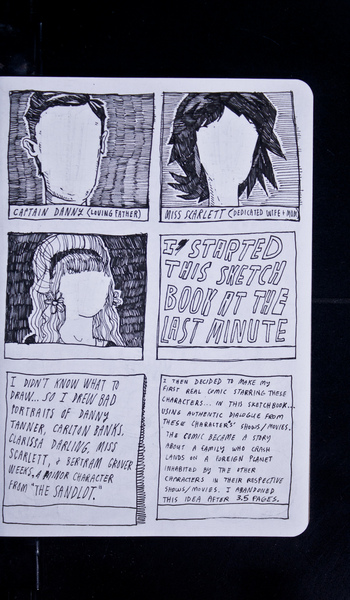 CAPTAIN DANNY (LOVING FATHER)
MISS SCARLETT (DEDICATED WIFE + MOM)
I STARTED
THIS SKETCH
BOOK AT THE
LAST MINUTE
I DIDN'T KNOW WHAT TO
DRAW... SO I DREW BAD
PORTRAITS OF DANNY
TANNER, CARLTON BANKS,
CLARISSA DARLING, MISS
SCARLETT, + BERTRAM GROVER
WEEKS. A MINOR CHARACTER
FROM "THE SANDLOT."
I THEN DECIDED TO MAKE MY
FIRST REAL COMIC STARRING THESE
CHARACTERS... IN THIS SKETCHBOOK...
USING AUTHENTIC DIALOGUE FROM
THESE CHARACTER'S SHOWS/MOVIES.
THE COMIC BECAME A STORY
ABOUT A FAMILY WHO CRASH
LANDS ON A FOREIGN PLANET
INHABITED BY THE OTHER
CHARACTERS IN THEIR RESPECTIVE
SHOWS/MOVIES. I ABANDONED
THIS IDEA AFTER 3.5 PAGES.